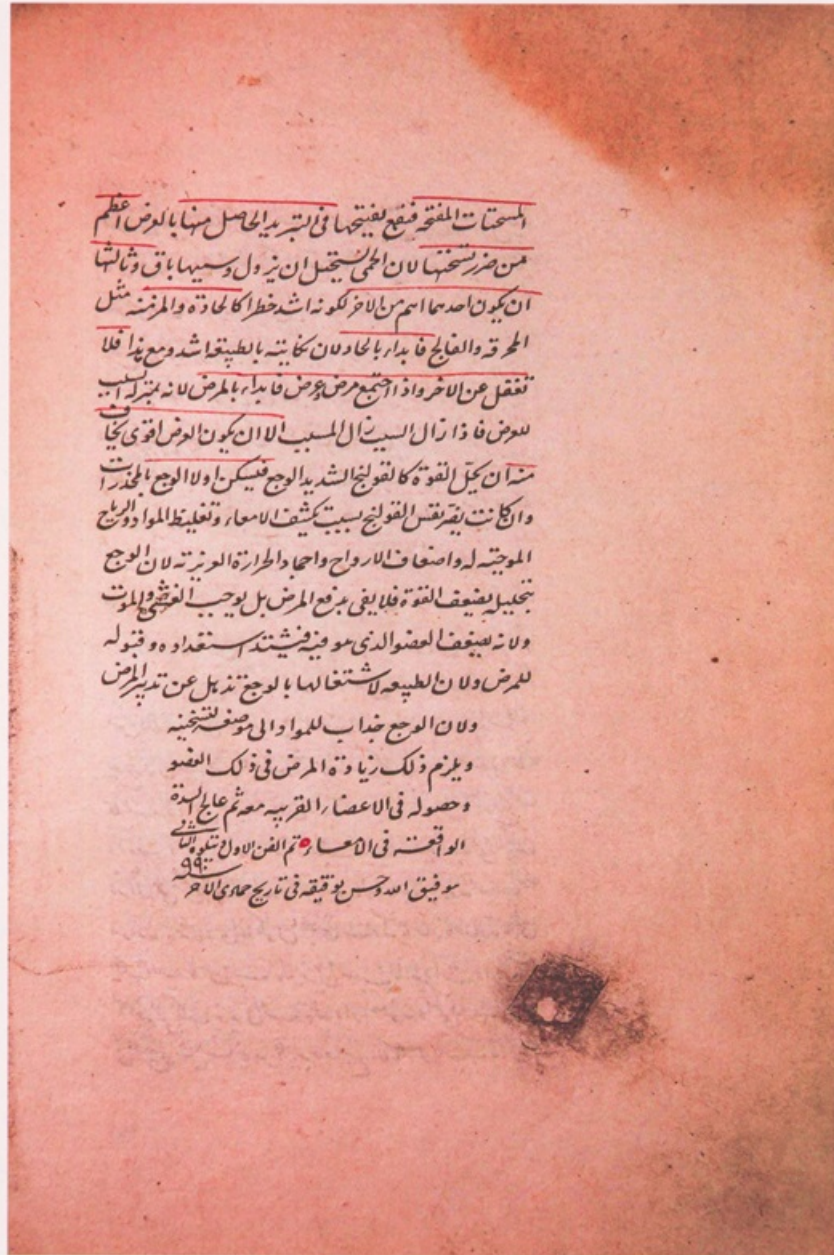 المسخنات المفتحه فنفع تفتيحها فى التبريد الحاصل منها بالعرض اعظم
من ضرر تسخنها لان الحمى يستحيل ان يزول وسببها باق وثالثها
ان يكون احدهما اهم من الاخر لكونه اشد خطرا كالحادة والمزمنه مثل
المحرقه والفالج فابداء بالحاد لان نكايته بالطبيعه اشد ومع هذا فلا
تغفل عن الاخر واذا اجتمع مرض وعرض فابداء بالمرض لانه بمنزله السبب
للعرض فاذا زال السبب زال المسبب الا ان يكون العرض اقوى يخاف
منه ان يحلل القوة كالقولنج الشديد الوجع فيسكن اولا الوجع بالمخدرات
وان كانت يضر بنفس القولنج بسبب تكثيف الامعاء وتغليظ المواد والرياح
الموجبته له واضعاف الارواح واخماد الحرارة الغريزته لان الوجع
بتحليله يضعف القوة فلا يفى بدفع المرض بل يوجب الغشى والموت
ولانه يضعف العضو الذى هو فيه فيشتد استعداده وقبوله
للمرض ولان الطبيعه لاشتغالها بالوجع تذهل عن تدبير المرض
ولان الوجع جذاب للمواد الى موضعه لتسخينه
ويلزم ذلك زيادة المرض فى ذلك العضو
وحصوله فى الاعضاء القريبه معه ثم عالج السدة
الواقعته فى الامعاء تم الفن الاول ويتلوه الثانى
بتوفيق الله وحسن توفيقه فى تاريخ جمادى الاخر سنه ٩٩٠